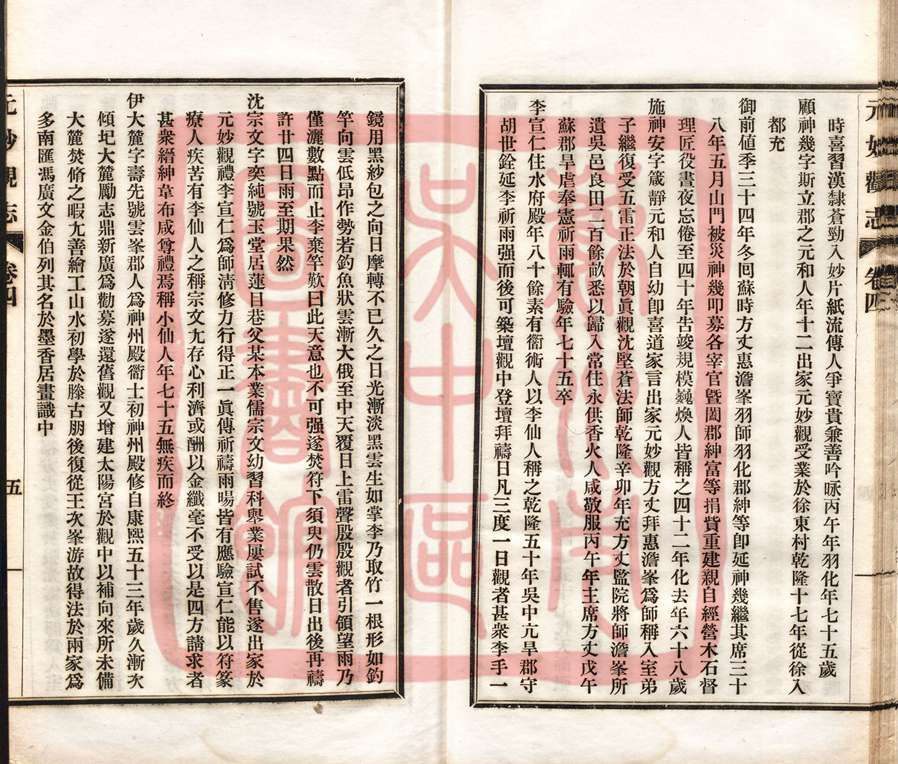 元妙觀志 卷四
時喜習漢隸蒼勁入妙片紙流傳人爭寶貴兼善吟咏丙午年羽化年七十五歲
顧神幾字斯立郡之元和人年十二出家元妙觀受業於徐東村乾隆十七年從徐入
都充
御前值季三十四年冬囘蘇時方丈惠澹峯羽師羽化郡紳等卽延神幾繼其席三十
八年五月山門被災神幾叩募各宰官暨闔郡紳富等捐貲重建親自經營木石督
理匠役晝夜忘倦至四十年告竣規模巍煥人皆稱之四十二年化去年六十八歲
施神安字箴靜元和人自幼卽喜道家言出家元妙觀方丈拜惠澹峯爲師稱入室弟
子繼復受五雷正法於朝眞觀沈堅蒼法師乾隆辛卯年充方丈監院將師澹峯所
遺吳邑良田二百餘畝悉以歸入常住永供香火人咸敬服丙午年主席方丈戊午
蘇郡旱虐奉憲祈雨輒有驗年七十五卒
李宣仁住水府殿年八十餘素有衟術人以李仙人稱之乾隆五十年吳中亢旱郡守
胡世銓延李祈雨强而後可築壇觀中登壇拜禱日凡三度一日觀者甚衆李手一
鏡用黑紗包之向日摩轉不已久之日光漸淡黑雲生如掌李乃取竹一根形如釣
竿向雲低昂作勢若釣魚狀雲漸大俄至中天覆日上雷聲殷殷觀者引領望雨乃
僅灑數點而止李棄竿歎曰此天意也不可强遂焚符下須臾仍雲散日出後再禱
許廿四日雨至期果然
沈宗文字奕純號玉堂居蓮目巷父某本業儒宗文幼習科舉業屢試不售遂出家於
元妙觀禮李宣仁爲師淸修力行得正一眞傳祈禱雨暘皆有應驗宣仁能以符篆
療人疾苦有李仙人之稱宗文尢存心利濟或酬以金纖毫不受以是四方請求者
甚衆縉紳韋布咸尊禮焉稱小仙人年七十五無疾而終
伊大麓字壽先號雲峯郡人爲神州殿衟士初神州殿修自康熙五十三年歲久漸次
傾圮大麓勵志鼎新廣爲勸募遂還舊觀又增建太陽宮於觀中以補向來所未備
大麓焚脩之暇尢善繪工山水初學於滕古朋後復從王次峯游故得法於兩家爲
多南匯馮廣文金伯列其名於墨香居畫識中
元妙觀志 卷四 五
蘇州市
吳中區
圖書館